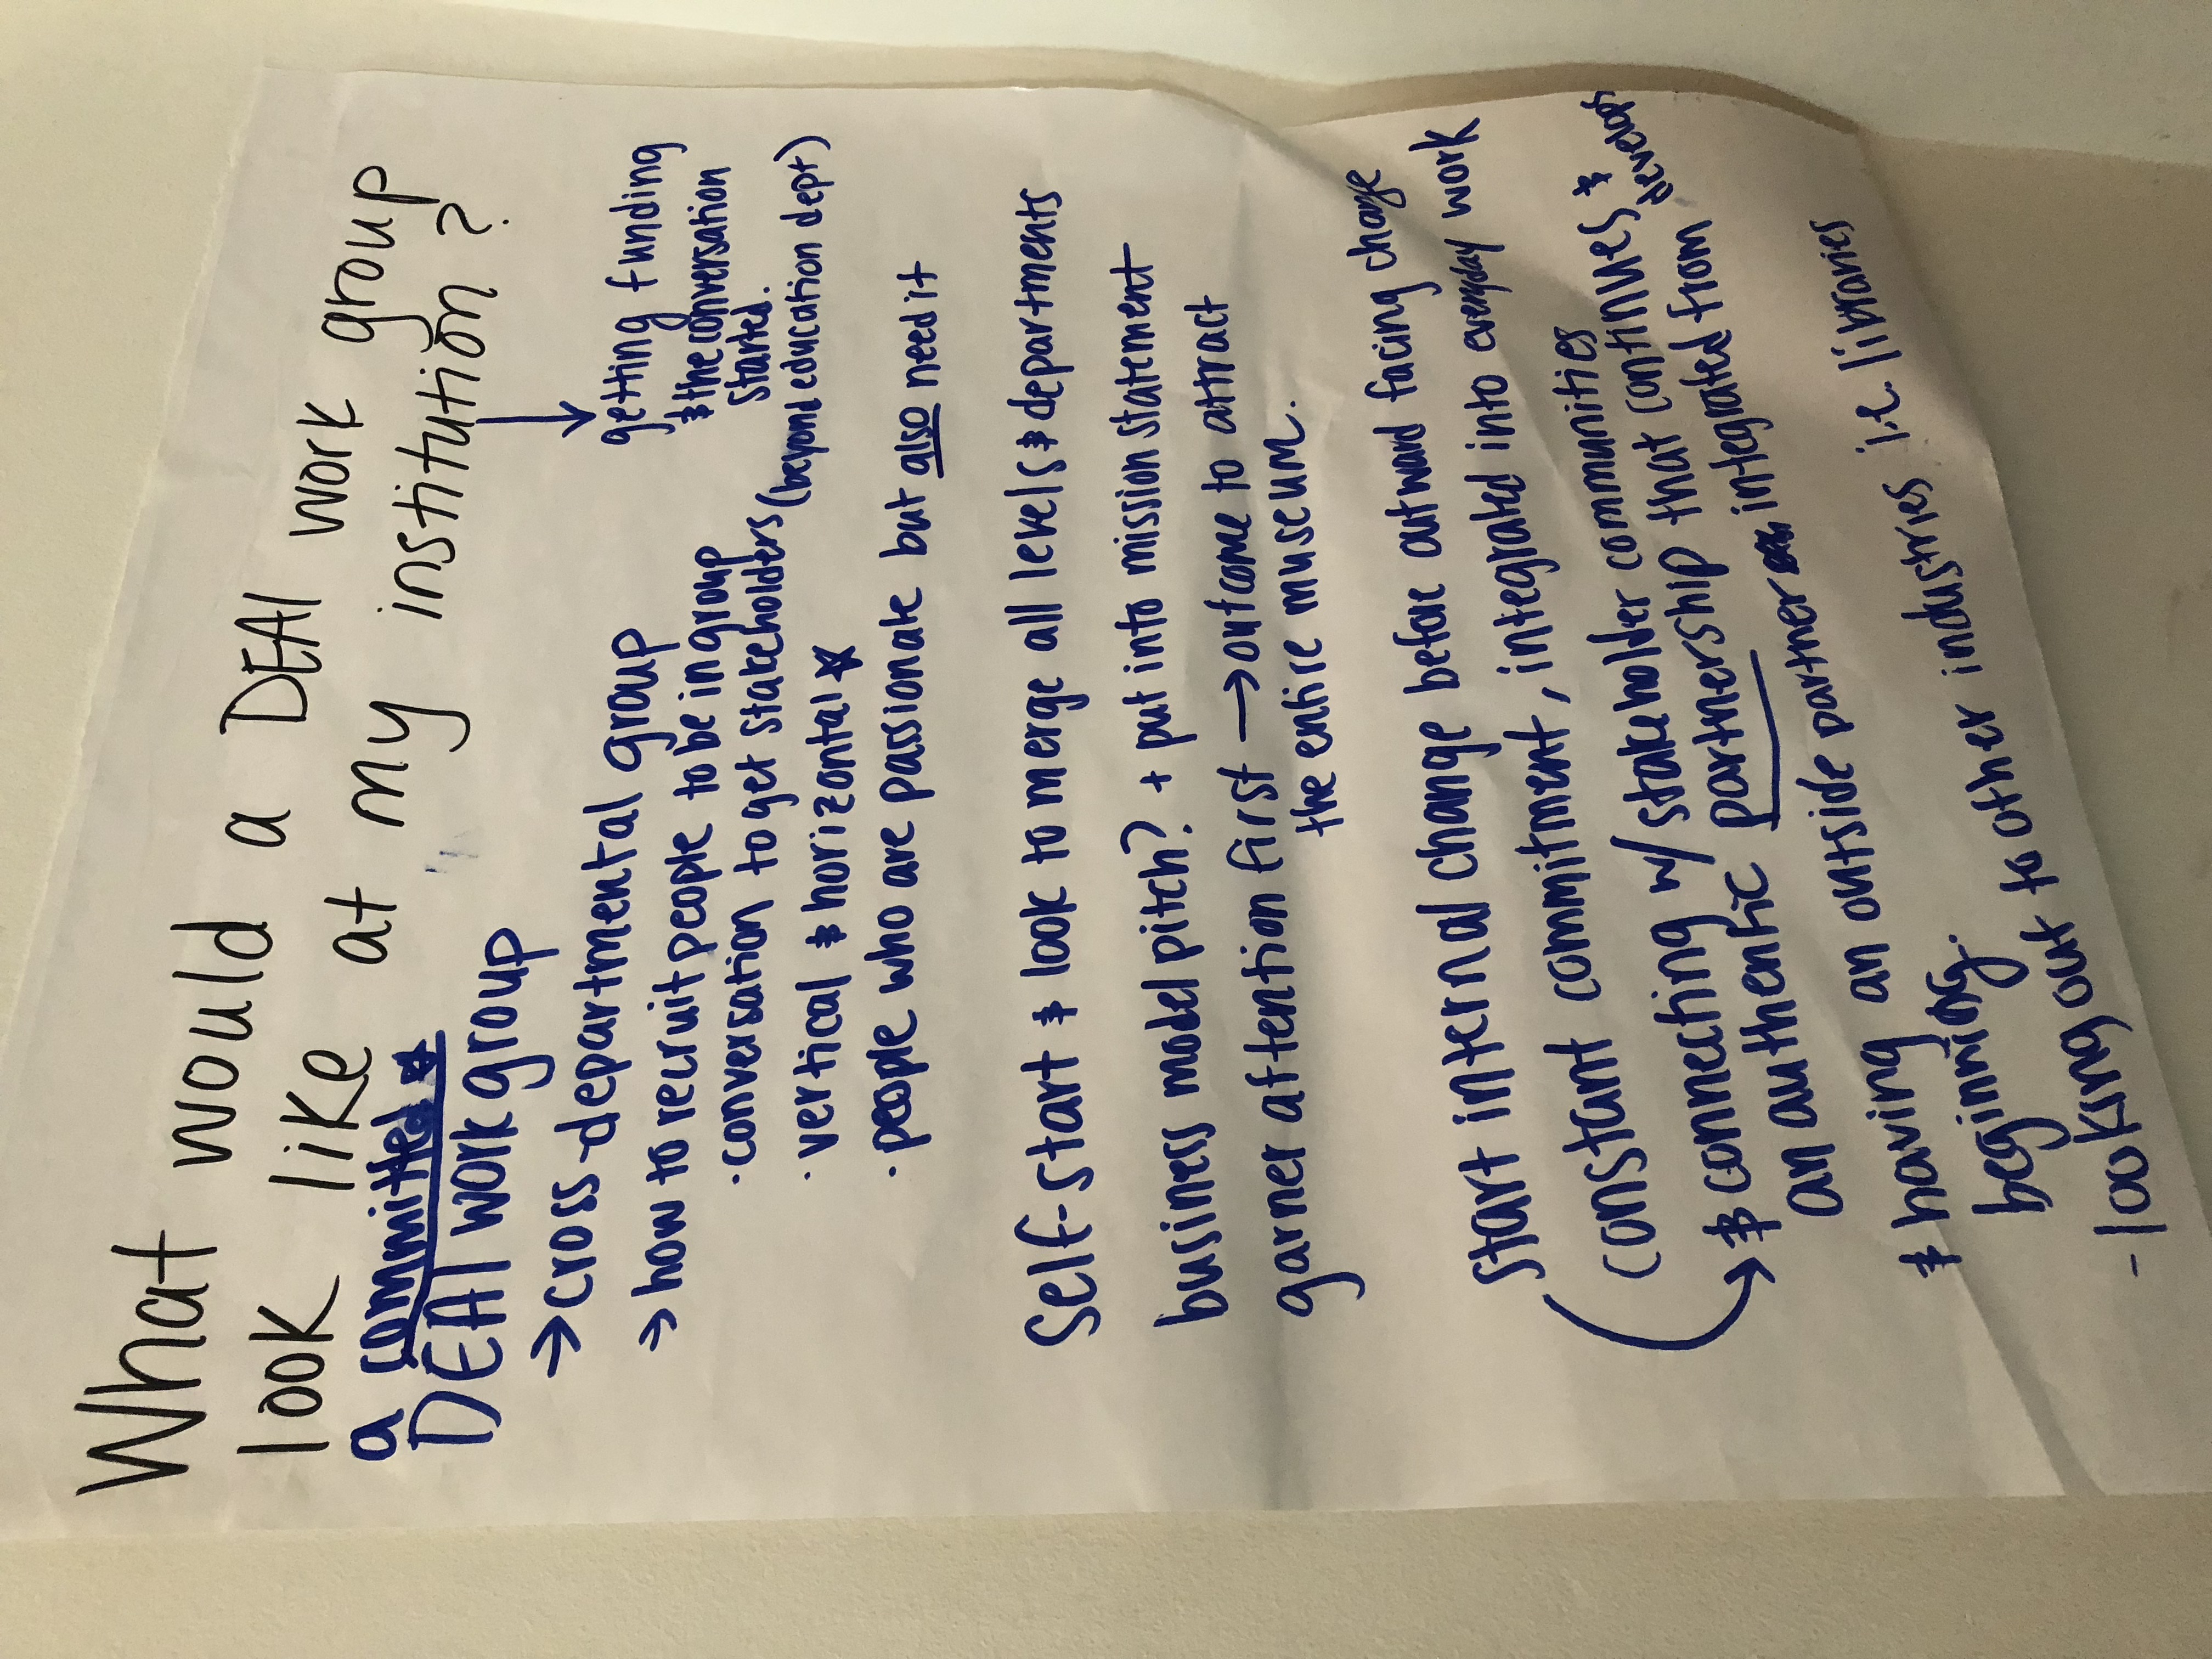 What would a DEAI work group
look like at my institution?
a committed ☆
DEAI work group
→ getting funding
& the conversation
started.
→ cross-departmental group
→ how to recruit people to be in group
· conversation to get stakeholders (beyond education dept)
· vertical & horizontal ☆
· people who are passionate but also need it
Self-start & look to merge all levels & departments
business model pitch? + put into mission statement
garner attention first → outcome to attract
the entire museum.
Start internal change before outward facing change
constant commitment, integrated into everyday work
→ & connecting w/ stakeholder communities
an authentic partnership that continues & develops
& having an outside partner integrated from
beginning.
- looking out to other industries i.e libraries